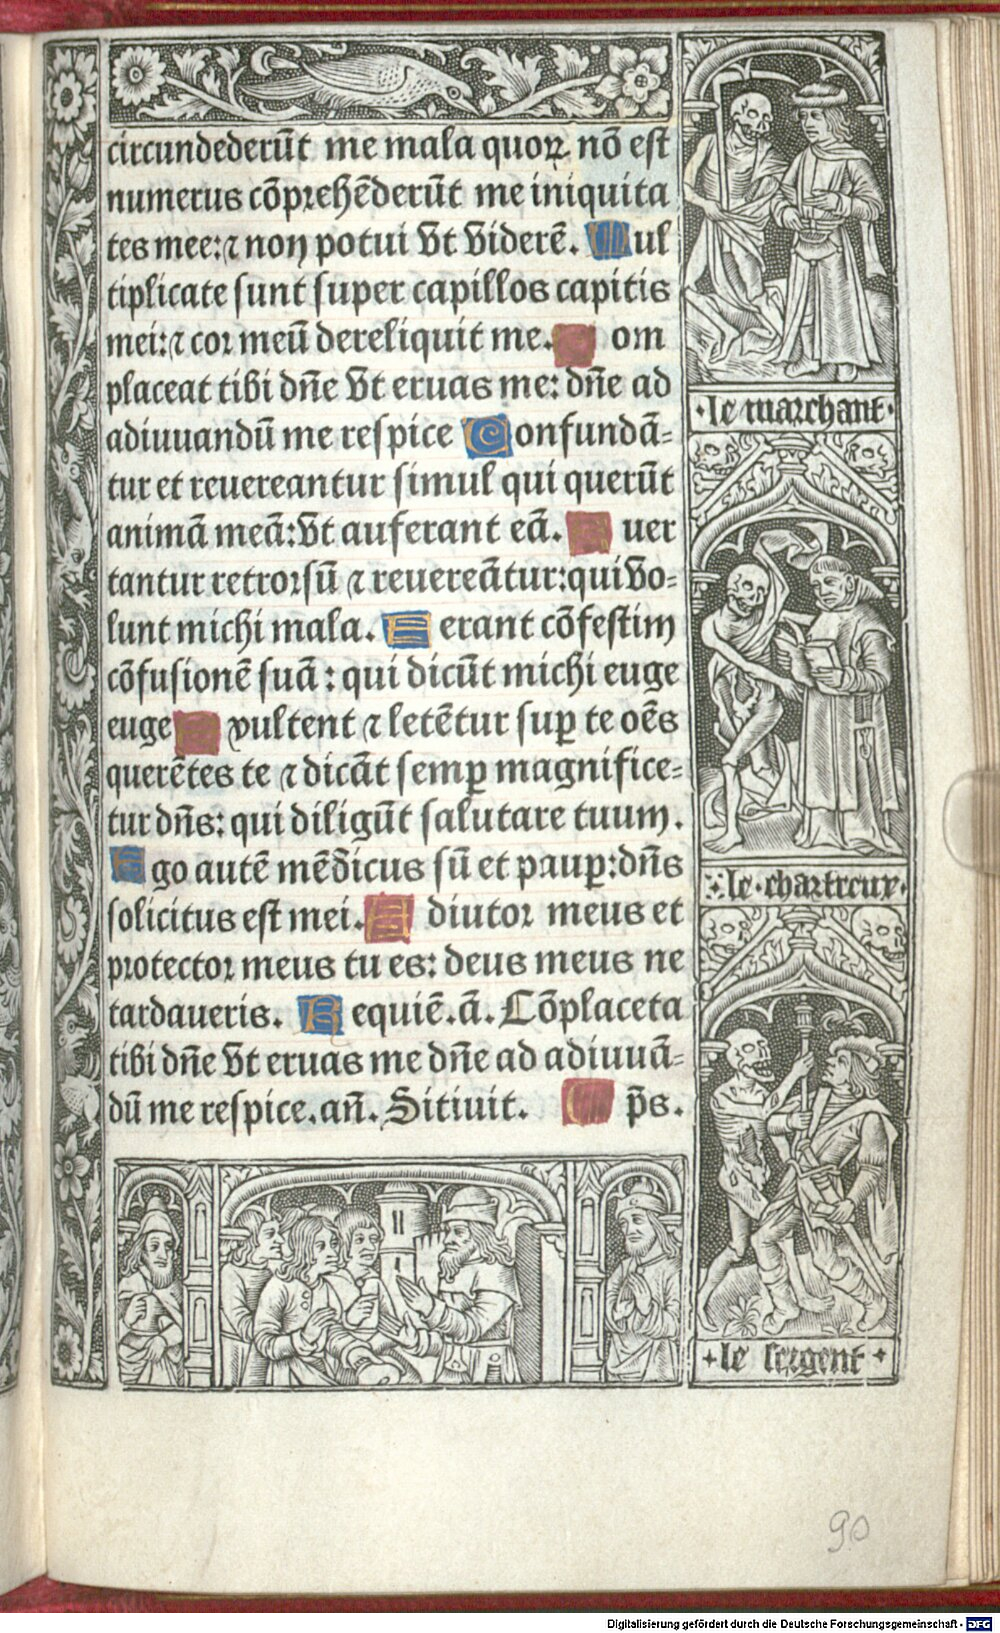 circundederūt me mala quoꝝ nō est
numerus cōprehēderūt me iniquita
tes mee: ⁊ non potui vt viderē. Mul
tiplicate sunt super capillos capitis
mei: ⁊ cor meū dereliquit me. om
placeat tibi dn̄e vt eruas me: dn̄e ad
adiuuandū me respice Confundā=
tur et reuereantur simul qui querūt
animā meā: vt auferant eā. uer
tantur retrorsū ⁊ reuereātur: qui vo=
lunt michi mala. Ferant cōfestim
cōfusionē suā: qui dicūt michi euge
euge xultent ⁊ letētur suꝑ te oēs
querētes te ⁊ dicāt semꝑ magnifice=
tur dn̄s: qui diligūt salutare tuum.
Ego autē mēdicus sū et pauꝑ: dn̄s
solicitus est mei. Adiutor meus et
protector meus tu es: deus meus ne
tardaueris. Requiē. ā. Cōplaceta
tibi dn̄e vt eruas me dn̄e ad adiuuā=
dū me respice. an̄. Sitiuit. p̄s.
le marchant
le chartreux
le sergent
90
Digitalisierung gefördert durch die Deutsche Forschungsgemeinschaft - DFG